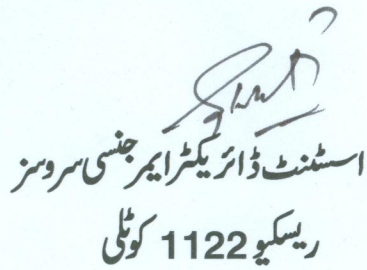 اسسٹنٹ ڈائریکٹر ایمرجنسی سروسز
ریسکیو 1122 کوٹلی